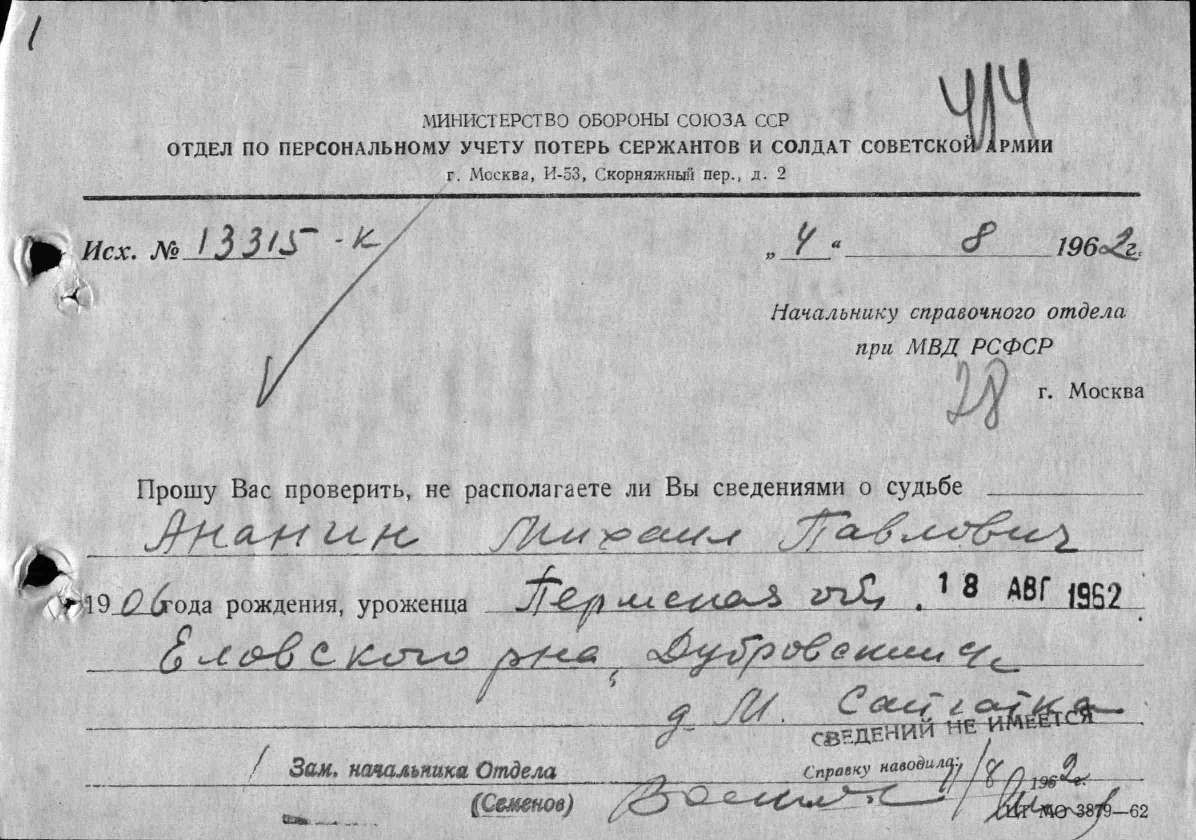 1
414
МИНИСТЕРСТВО ОБОРОНЫ СОЮЗА ССР
ОТДЕЛ ПО ПЕРСОНАЛЬНОМУ УЧЕТУ ПОТЕРЬ СЕРЖАНТОВ И СОЛДАТ СОВЕТСКОЙ АРМИИ
г. Москва, И-53, Скорняжный пер., д. 2
Исх. № 13315-К „4“ 8 1962г.
Начальнику справочного отдела
при МВД РСФСР
28
г. Москва
Прошу Вас проверить, не располагаете ли Вы сведениями о судьбе
Ананин Михаил Павлович
1906 года рождения, уроженца Пермская обл, 18 АВГ 1962
Еловского рна, Дубровский
д М. Сайгатка
СВЕДЕНИЙ НЕ ИМЕЕТСЯ
Зам. начальника Отдела
Справку наводила: 11/8 1962г.
(Семенов)
ЦТ МО 3879—62